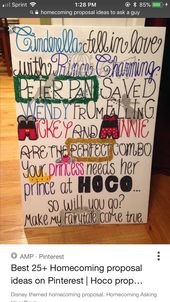 Sprint 1:28 PM 85%
homecoming proposal ideas to ask a guy
Cinderella fell in love
with Prince Charming
PETER PAN SAVED
WENDY FROM FALLING
MICKEY AND MINNIE
ARE THE PERFECT COMBO
Your princess needs her
prince at HOCO...
so will you go?
Make my fairytale come true
AMP · Pinterest
Best 25+ Homecoming proposal
ideas on Pinterest | Hoco prop...
Disney themed homecoming proposal. Homecoming Asking